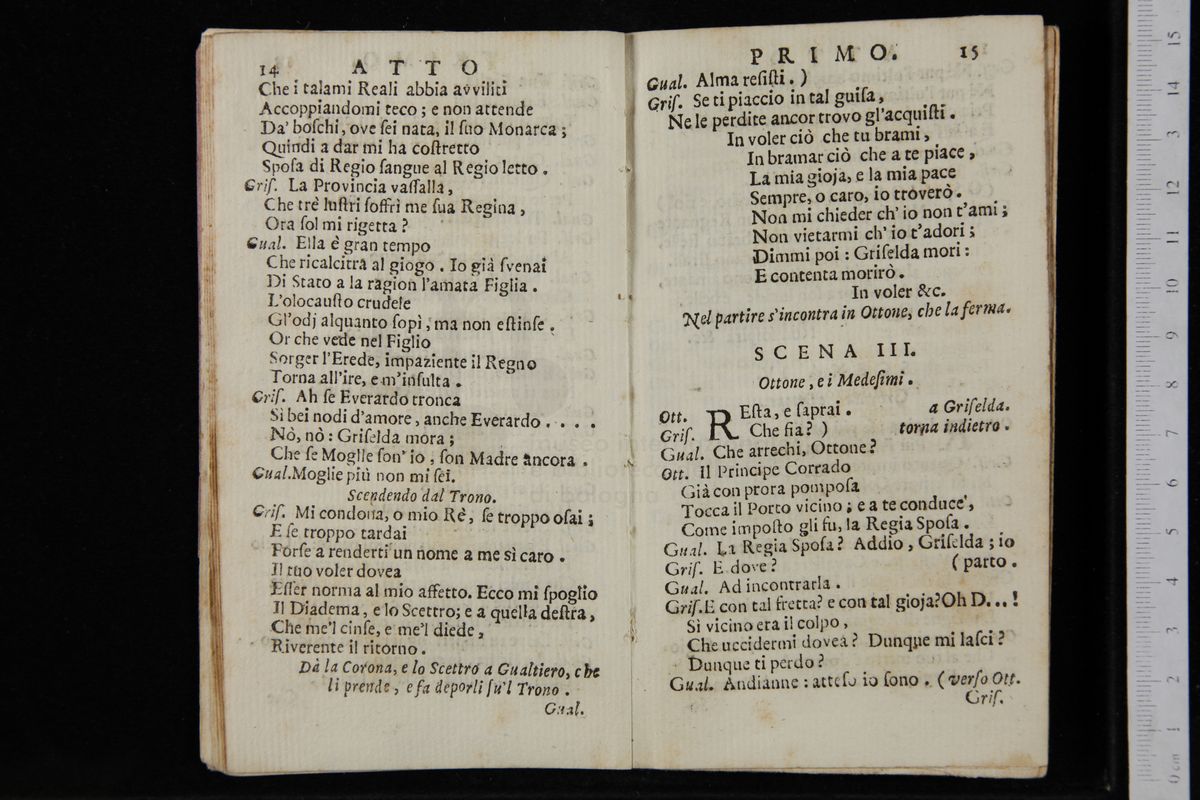 14 ATTO
Che i talami Reali abbia avviliti
Accoppiandomi teco ; e non attende
Da' boſchi, ove ſei nata, il ſuo Monarca ;
Quindi a dar mi ha coſtretto
Spoſa di Regio ſangue al Regio letto .
Griſ. La Provincia vaſſalla ,
Che trè luſtri ſoffrì me ſua Regina ,
Ora ſol mi rigetta ?
Gual. Ella è gran tempo
Che ricalcitra al giogo . Io già ſvenai
Di Stato a la ragion l'amata Figlia .
L'olocauſto crudele
Gl'odj alquanto ſopì , ma non eſtinſe .
Or che vede nel Figlio
Sorger l'Erede, impaziente il Regno
Torna all'ire, e m'inſulta .
Griſ. Ah ſe Everardo tronca
Sì bei nodi d'amore , anche Everardo . . . .
Nò, nò : Griſelda mora ;
Che ſe Moglle ſon' io , ſon Madre ancora .
Gual.Moglie più non mi ſei.
Scendendo dal Trono.
Griſ. Mi condona, o mio Rè, ſe troppo oſai ;
E ſe troppo tardai
Forſe a renderti un nome a me sì caro .
Il tuo voler dovea
Eſſer norma al mio affetto. Ecco mi ſpoglio
Il Diadema , e lo Scettro; e a quella deſtra ,
Che me'l cinſe, e me'l diede ,
Riverente il ritorno .
Dà la Corona, e lo Scettro a Gualtiero, che
li prende , e fa deporli ſu'l Trono .
Gual.
PRIMO. 15
Gual. Alma reſiſti . )
Griſ. Se ti piaccio in tal guiſa ,
Ne le perdite ancor trovo gl'acquiſti .
In voler ciò che tu brami ,
In bramar ciò che a te piace ,
La mia gioja, e la mia pace
Sempre, o caro, io troverò .
Non mi chieder ch' io non t'ami ;
Non vietarmi ch' io t'adori ;
Dimmi poi : Griſelda mori :
E contenta morirò .
In voler &c.
Nel partire s'incontra in Ottone, che la ferma.
SCENA III.
Ottone , e i Medeſimi .
Ott. REſta, e ſaprai . a Griſelda.
Griſ. Che fia? ) torna indietro .
Gual. Che arrechi, Ottone ?
Ott. Il Principe Corrado
Già con prora pompoſa
Tocca il Porto vicino ; e a te conduce ,
Come impoſto gli fu, la Regia Spoſa .
Gual. La Regia Spoſa ? Addio , Griſelda ; io
Griſ. E dove ? ( parto .
Gual. Ad incontrarla .
Griſ.E con tal fretta? e con tal gioja?Oh D...!
Sì vicino era il colpo ,
Che uccidermi dovea ? Dunque mi laſci ?
Dunque ti perdo ?
Gual. Andianne : atteſo io ſono . ( verſo Ott.
Griſ.